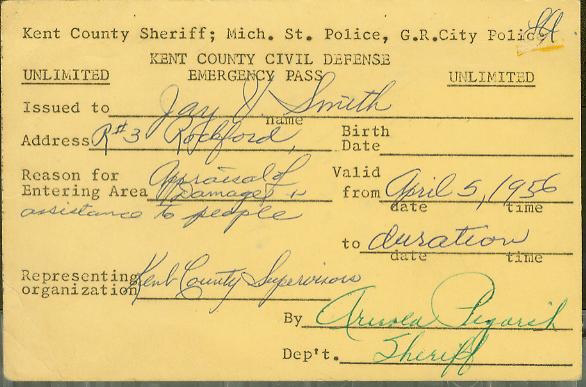 Kent County Sheriff; Mich. St. Police, G.R.City Police
KENT COUNTY CIVIL DEFENSE
UNLIMITED EMERGENCY PASS UNLIMITED
Issued to Jay Smith
name
Address R#3 Rockford, Birth
Date
Reason for Appraisal of Valid
Entering Area Damages from April 5, 1956
date time
assistance to people
to duration
date time
Representing Kent County Supervisors
organization
By
Dep't. Sheriff